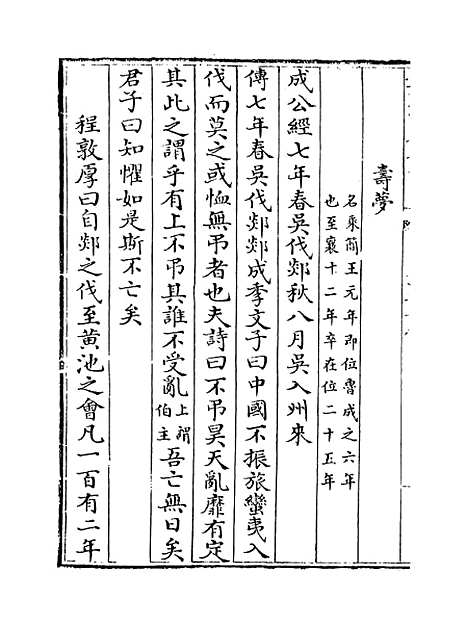 壽夢
名乘簡王元年即位魯成之六年
也至襄十二年卒在位二十五年
成公經七年春吳伐郯秋八月吳入州來
傳七年春吳伐郯郯成季文子曰中國不振旅蠻夷入
伐而莫之或恤無弔者也夫詩曰不弔昊天亂靡有定
其此之謂乎有上不弔其誰不受亂上謂伯主吾亡無日矣
君子曰知懼如是斯不亡矣
程敦厚曰自郯之伐至黄池之會凡一百有二年